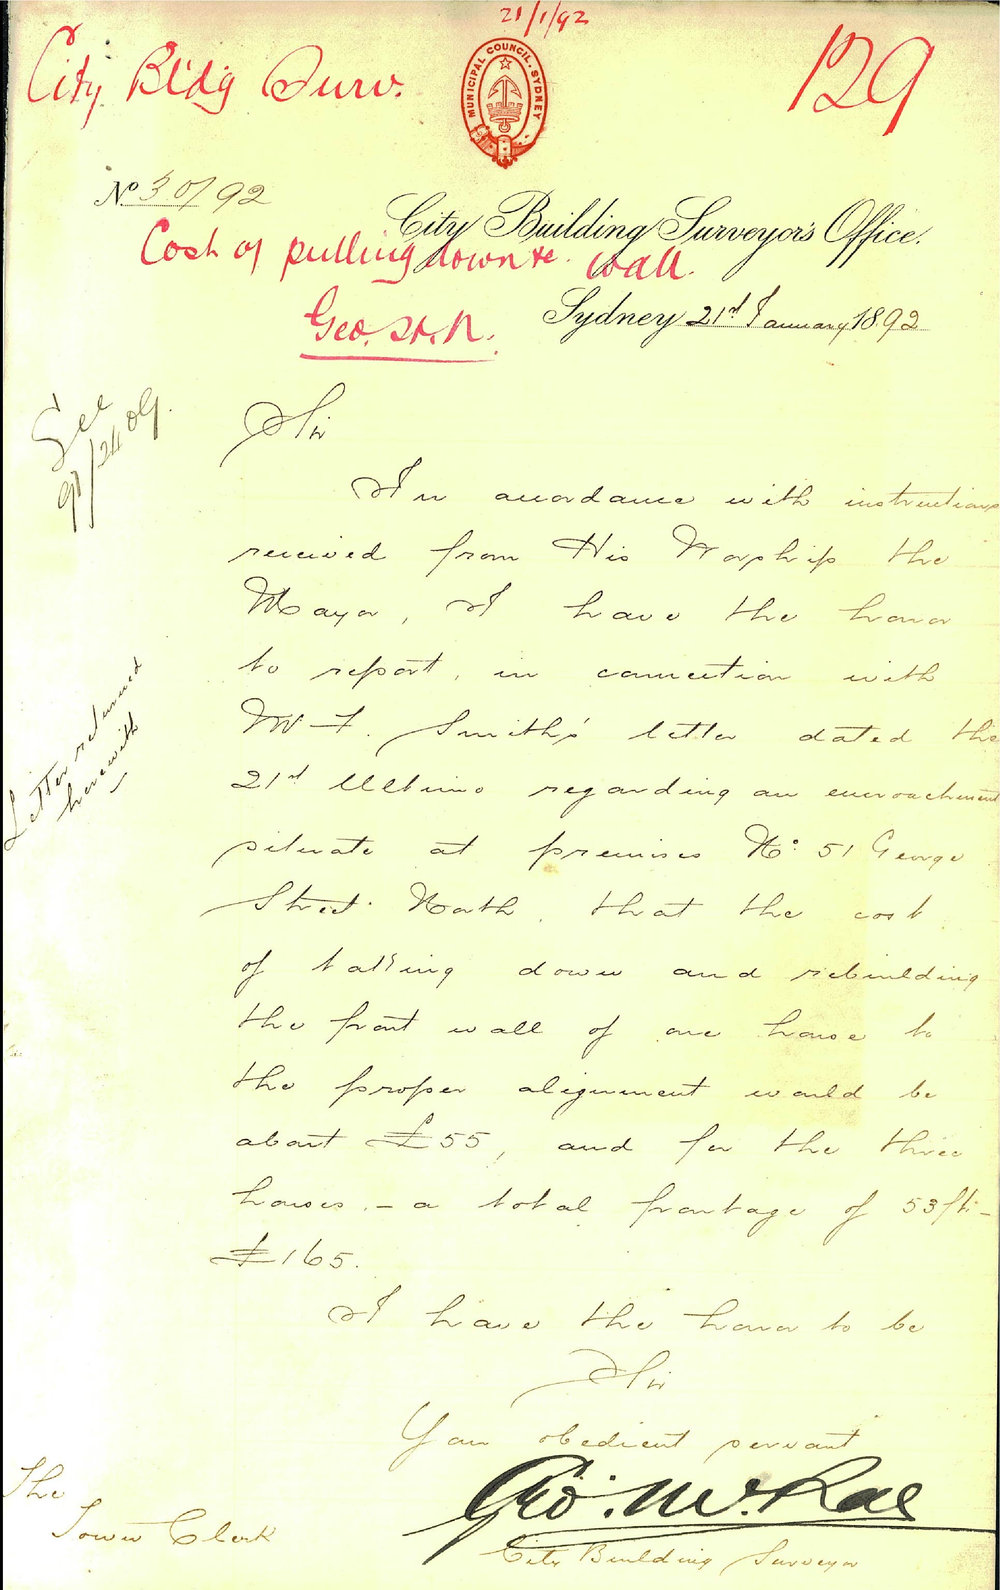 21/1/92
City Bldg Surv.
129
MUNICIPAL COUNCIL. SYDNEY
No 30/92
City Building Surveyor's Office.
Cost of pulling down &c. wall
Geo. St. N.
Sydney 21st January 1892
See
91/2409.
Sir
In accordance with instructions
received from His Worship the
Mayor, I have the honor
to report, in connection with
Mr F. Smith's letter dated the
21st Ultimo regarding an encroachment
Letter returned
herewith
situate at premises No. 51 George
Street North, that the cost
of taking down and rebuilding
the front wall of one house to
the proper alignment would be
about £55, and for the three
houses, - a total frontage of 53ft -
£165.
I have the honor to be
Sir
Your obedient servant
Geo. McRae
City Building Surveyor
The
Town Clerk